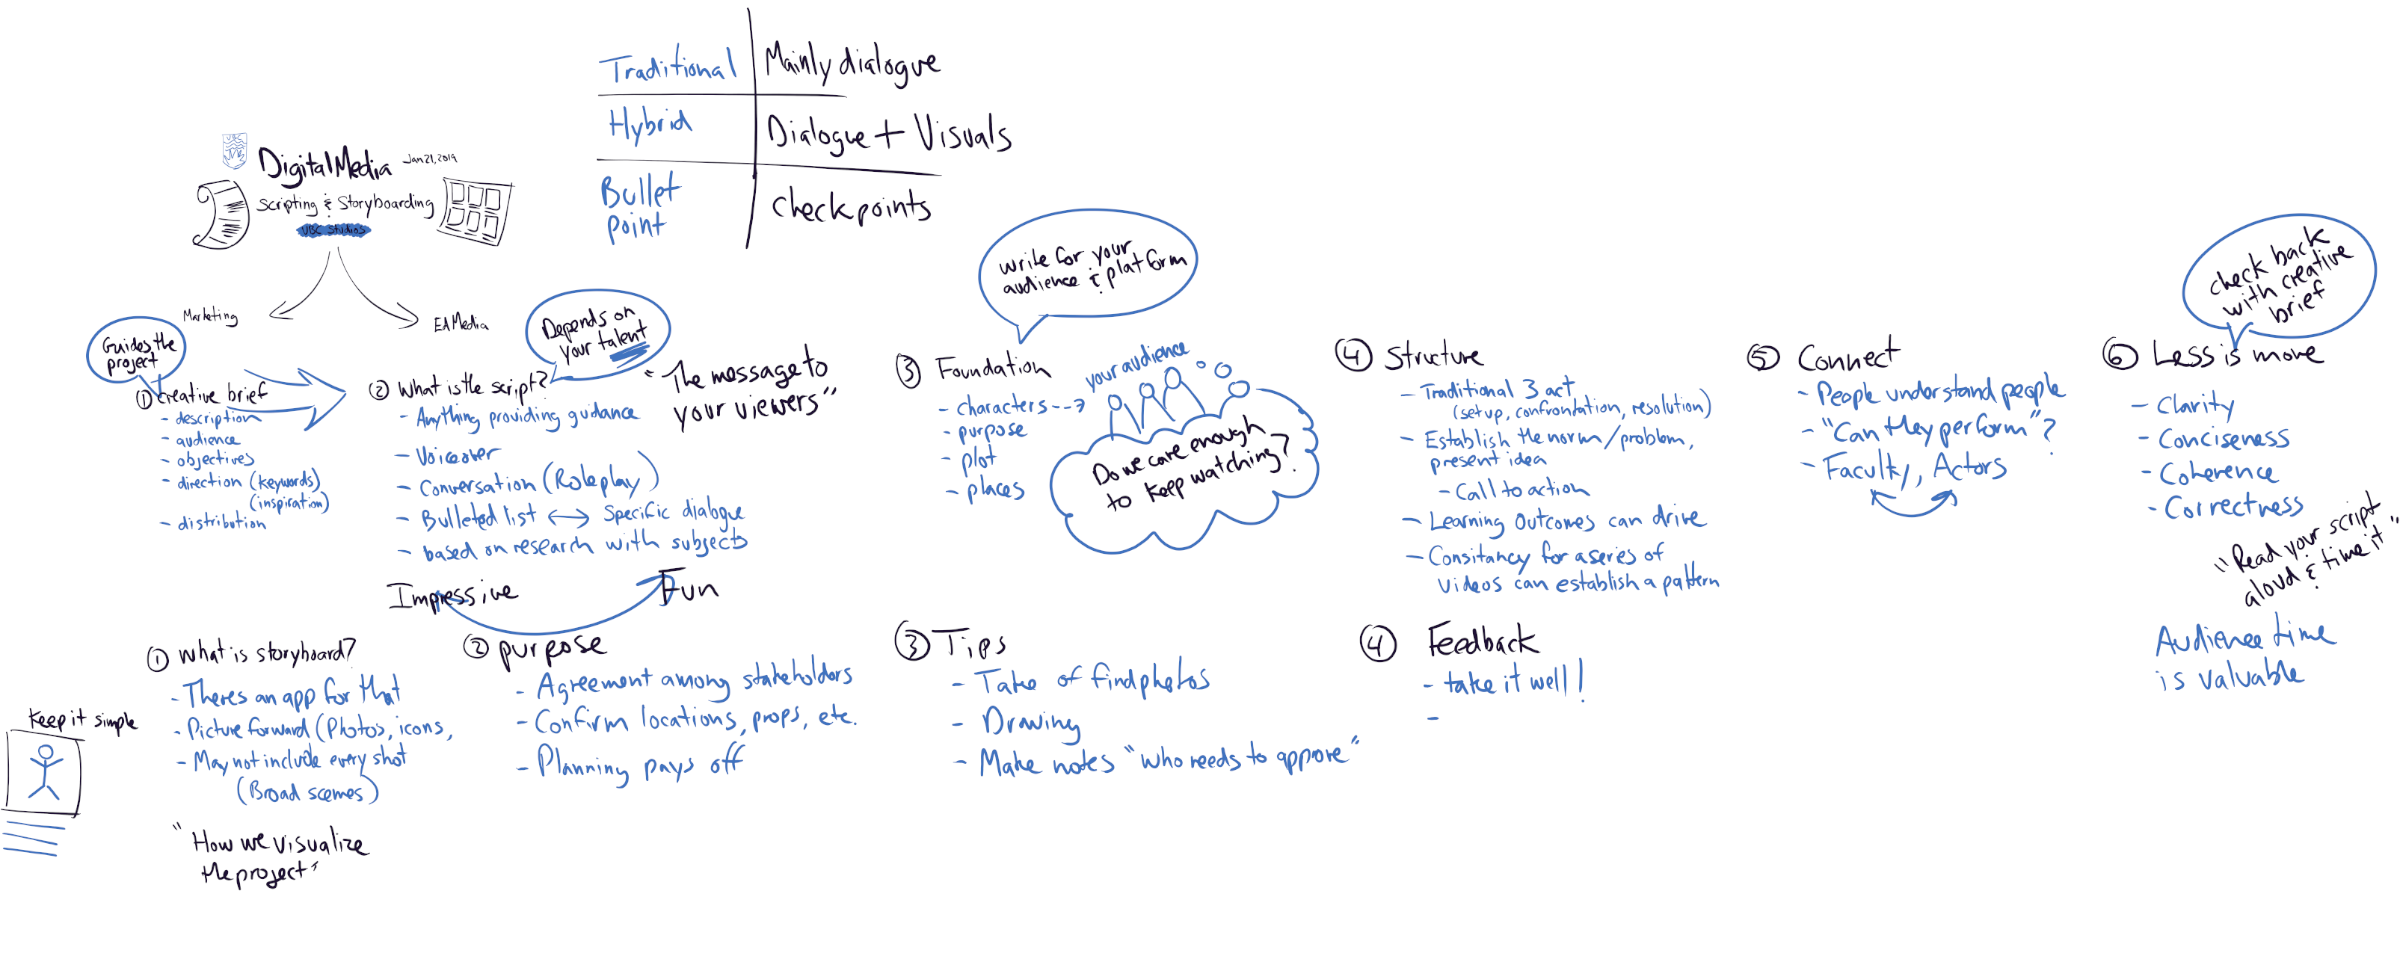 Traditional | Mainly dialogue
Hybrid | Dialogue + Visuals
Bullet point | checkpoints
UBC
Digital Media Jan 21, 2019
Scripting & Storyboarding
UBC Studios
Marketing
EA Media
Guides the
project
① Creative brief
- description
- audience
- objectives
- direction (keywords)
(inspiration)
- distribution
Depends on
your talent
② What is the script?
- Anything providing guidance
- Voiceover
- Conversation (Roleplay)
- Bulleted list <-> Specific dialogue
- based on research with subjects
"The message to
your viewers"
Impressive Fun
write for your
audience & platform
③ Foundation
- characters-->
- purpose
- plot
- places
your audience
Do we care enough
to keep watching?
④ Structure
- Traditional 3 act
(setup, confrontation, resolution)
- Establish the norm/problem,
present idea
- Call to action
- Learning Outcomes can drive
- Consitancy for a series of
videos can establish a pattern
⑤ Connect
- People understand people
- "Can they perform"?
- Faculty, Actors
check back
with creative
brief
⑥ Less is more
- Clarity
- Conciseness
- Coherence
- Correctness
"Read your script
aloud & time it"
Audience time
is valuable
Keep it simple
① What is storyboard?
- Theres an app for that
- Picture forward (Photos, icons,
- May not include every shot
(Broad scemes)
"How we visualize
the project"
② purpose
- Agreement among stakeholders
- Confirm locations, props, etc.
- Planning pays off
③ Tips
- Take of find photos
- Drawing
- Make notes "who needs to approve"
④ Feedback
- take it well!
-